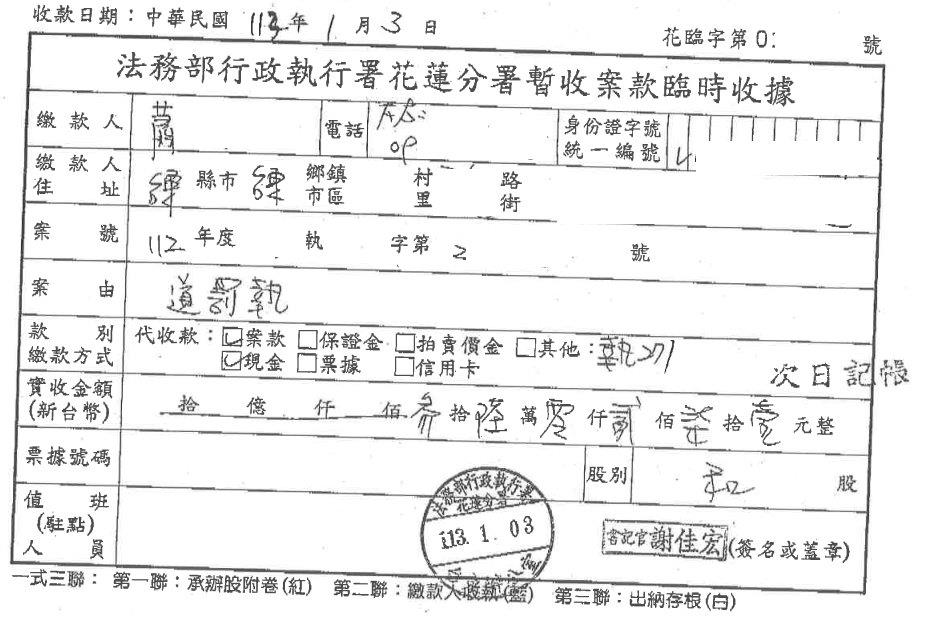 收款日期：中華民國 113 年 1 月 3 日
花臨字第0 號
法務部行政執行署花蓮分署暫收案款臨時收據
繳款人 黃 電話 身份證字號
統一編號
繳款人住址 縣市 鄉鎮市區 村里 路街
案號 112 年度 執 字第 2 號
案由 道罰執
款別 代收款：☑案款 □保證金 □拍賣價金 □其他：
繳款方式 ☑現金 □票據 □信用卡
次日記帳
實收金額(新台幣) 拾 億 仟 佰 參 拾 陸 萬 零 仟 貳 佰 柒 拾 壹 元整
票據號碼 股別 和 股
值班(駐點)人員 書記官 謝佳宏 (簽名或蓋章)
法務部行政執行署
花蓮分署
113. 1. 03
一式三聯： 第一聯：承辦股附卷(紅) 第二聯：繳款人收執(藍) 第三聯：出納存根(白)